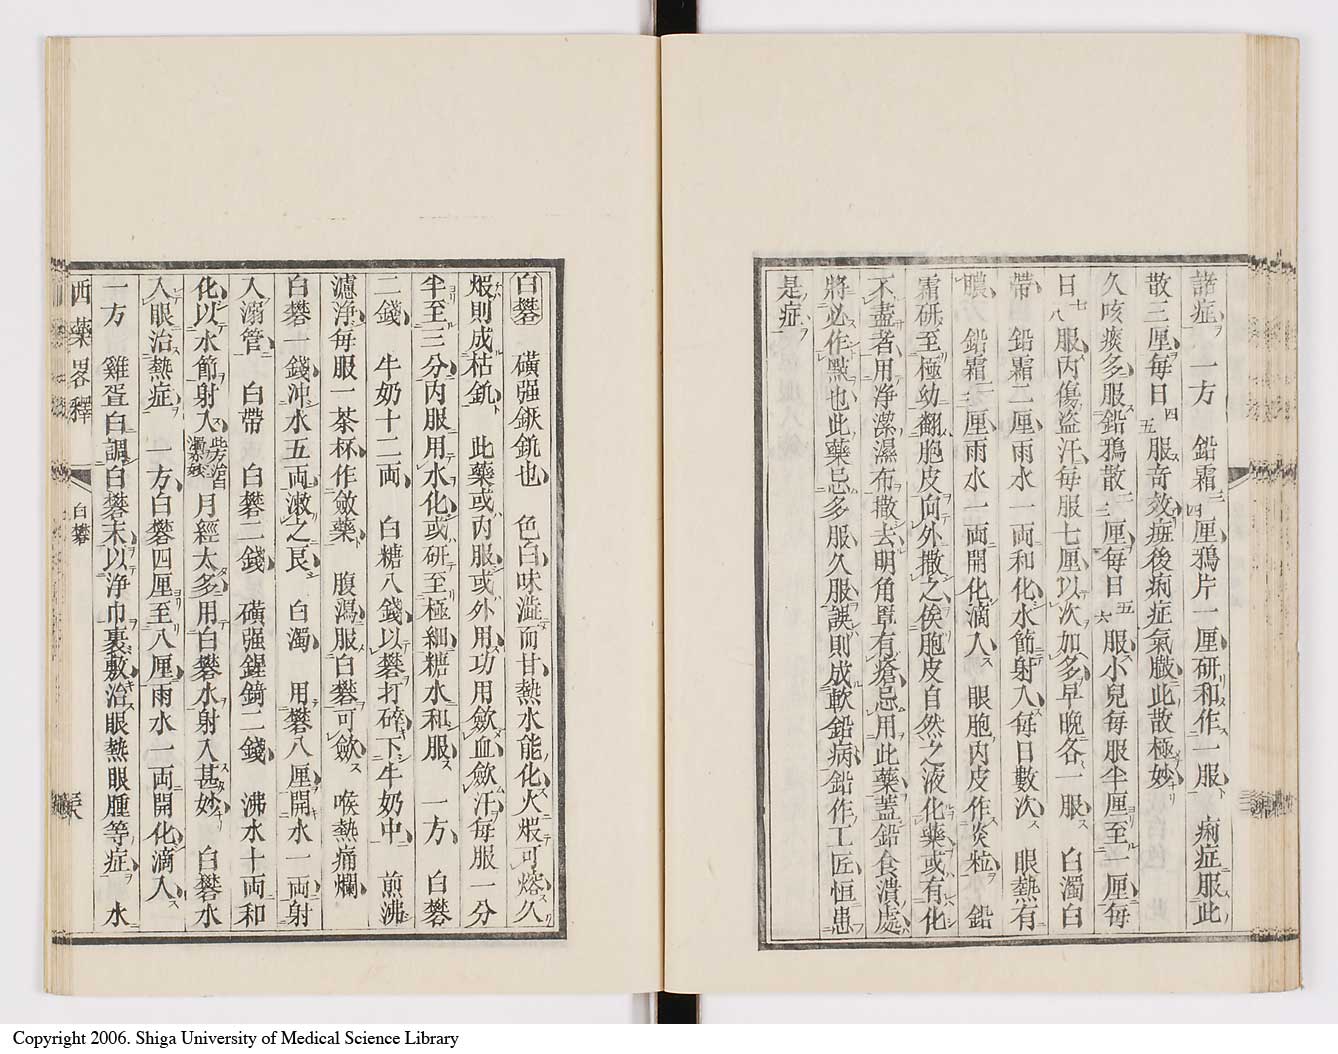 諸症 一方 鉛霜三四厘鴉片一厘研和作一服 痢症服此
散三厘每日四五服奇效瘧後痢症氣臌此散極妙
久咳痰多服鉛鴉散二三厘每日五六服小兒每服半厘至一厘每
日七八服內傷盜汗每服七厘以次加多早晚各一服 白濁白
帶 鉛霜二厘雨水一両和化水節射入每日數次 眼熱有
膿 鉛霜二三厘雨水一両開化滴入 眼胞內皮作炎粒 鉛
霜研至極幼翻胞皮向外撒之俟胞皮自然之液化藥或有化
不盡者用净潔濕布撒去明角罩有瘡忌用此藥蓋鉛食潰處
將必作㸃也此藥忌多服久服誤則成軟鉛病鉛作工匠恒患
是症
白礬 磺强鈱釚也 色白味澁而甘熱水能化火煅可熔久
煅則成枯釚 此藥或內服或外用功用歛血歛汗每服一分
半至三分內服用水化或研至極細糖水和服 一方 白礬
二錢 牛奶十二両 白糖八錢以礬打碎下牛奶中 煎沸
濾淨每服一茶杯作斂藥 腹瀉服白礬可歛 喉熱痛爛
白礬一錢冲水五両漱之良 白濁 用礬八厘開水一両射
入溺管 白帶 白礬二錢 磺强鋅鏀二錢 沸水十両和
化以水節射入此方治白濁亦效月經太多用白礬水射入甚妙 白礬水
入眼治熱症 一方白礬四厘至八厘雨水一両開化滴入
一方 雞蛋白調白礬末以淨巾裹敷治眼熱眼腫等症 水
西藥畧釋 白礬